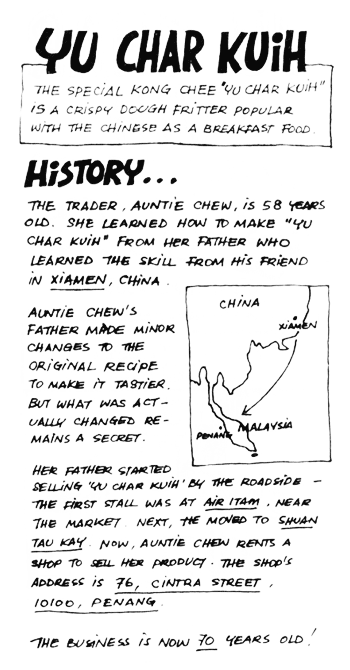 YU CHAR KUiH
THE SPECiAL KONG CHEE "YU CHAR KUiH"
iS A CRiSPY DOUGH FRiTTER POPULAR
WiTH THE CHiNESE AS A BREAKFAST FOOD.
HiSTORY...
THE TRADER, AUNTiE CHEW, iS 58 YEARS
OLD. SHE LEARNED HOW TO MAKE "YU
CHAR KUiH" FROM HER FATHER WHO
LEARNED THE SKiLL FROM HiS FRiEND
iN XiAMEN, CHiNA.
AUNTiE CHEW'S
FATHER MADE MiNOR
CHANGES TO THE
ORiGiNAL RECiPE
TO MAKE iT TASTiER.
BUT WHAT WAS ACT-
UALLY CHANGED RE-
MAiNS A SECRET.
CHiNA
XiAMEN
PENANG
MALAYSiA
HER FATHER STARTED
SELLiNG 'YU CHAR KUiH' BY THE ROADSiDE -
THE FiRST STALL WAS AT AiR iTAM, NEAR
THE MARKET. NEXT, HE MOVED TO SHUAN
TAU KAY. NOW, AUNTiE CHEW RENTS A
SHOP TO SELL HER PRODUCT. THE SHOP'S
ADDRESS iS 76, CiNTRA STREET,
10100, PENANG.
THE BUSiNESS iS NOW 70 YEARS OLD!